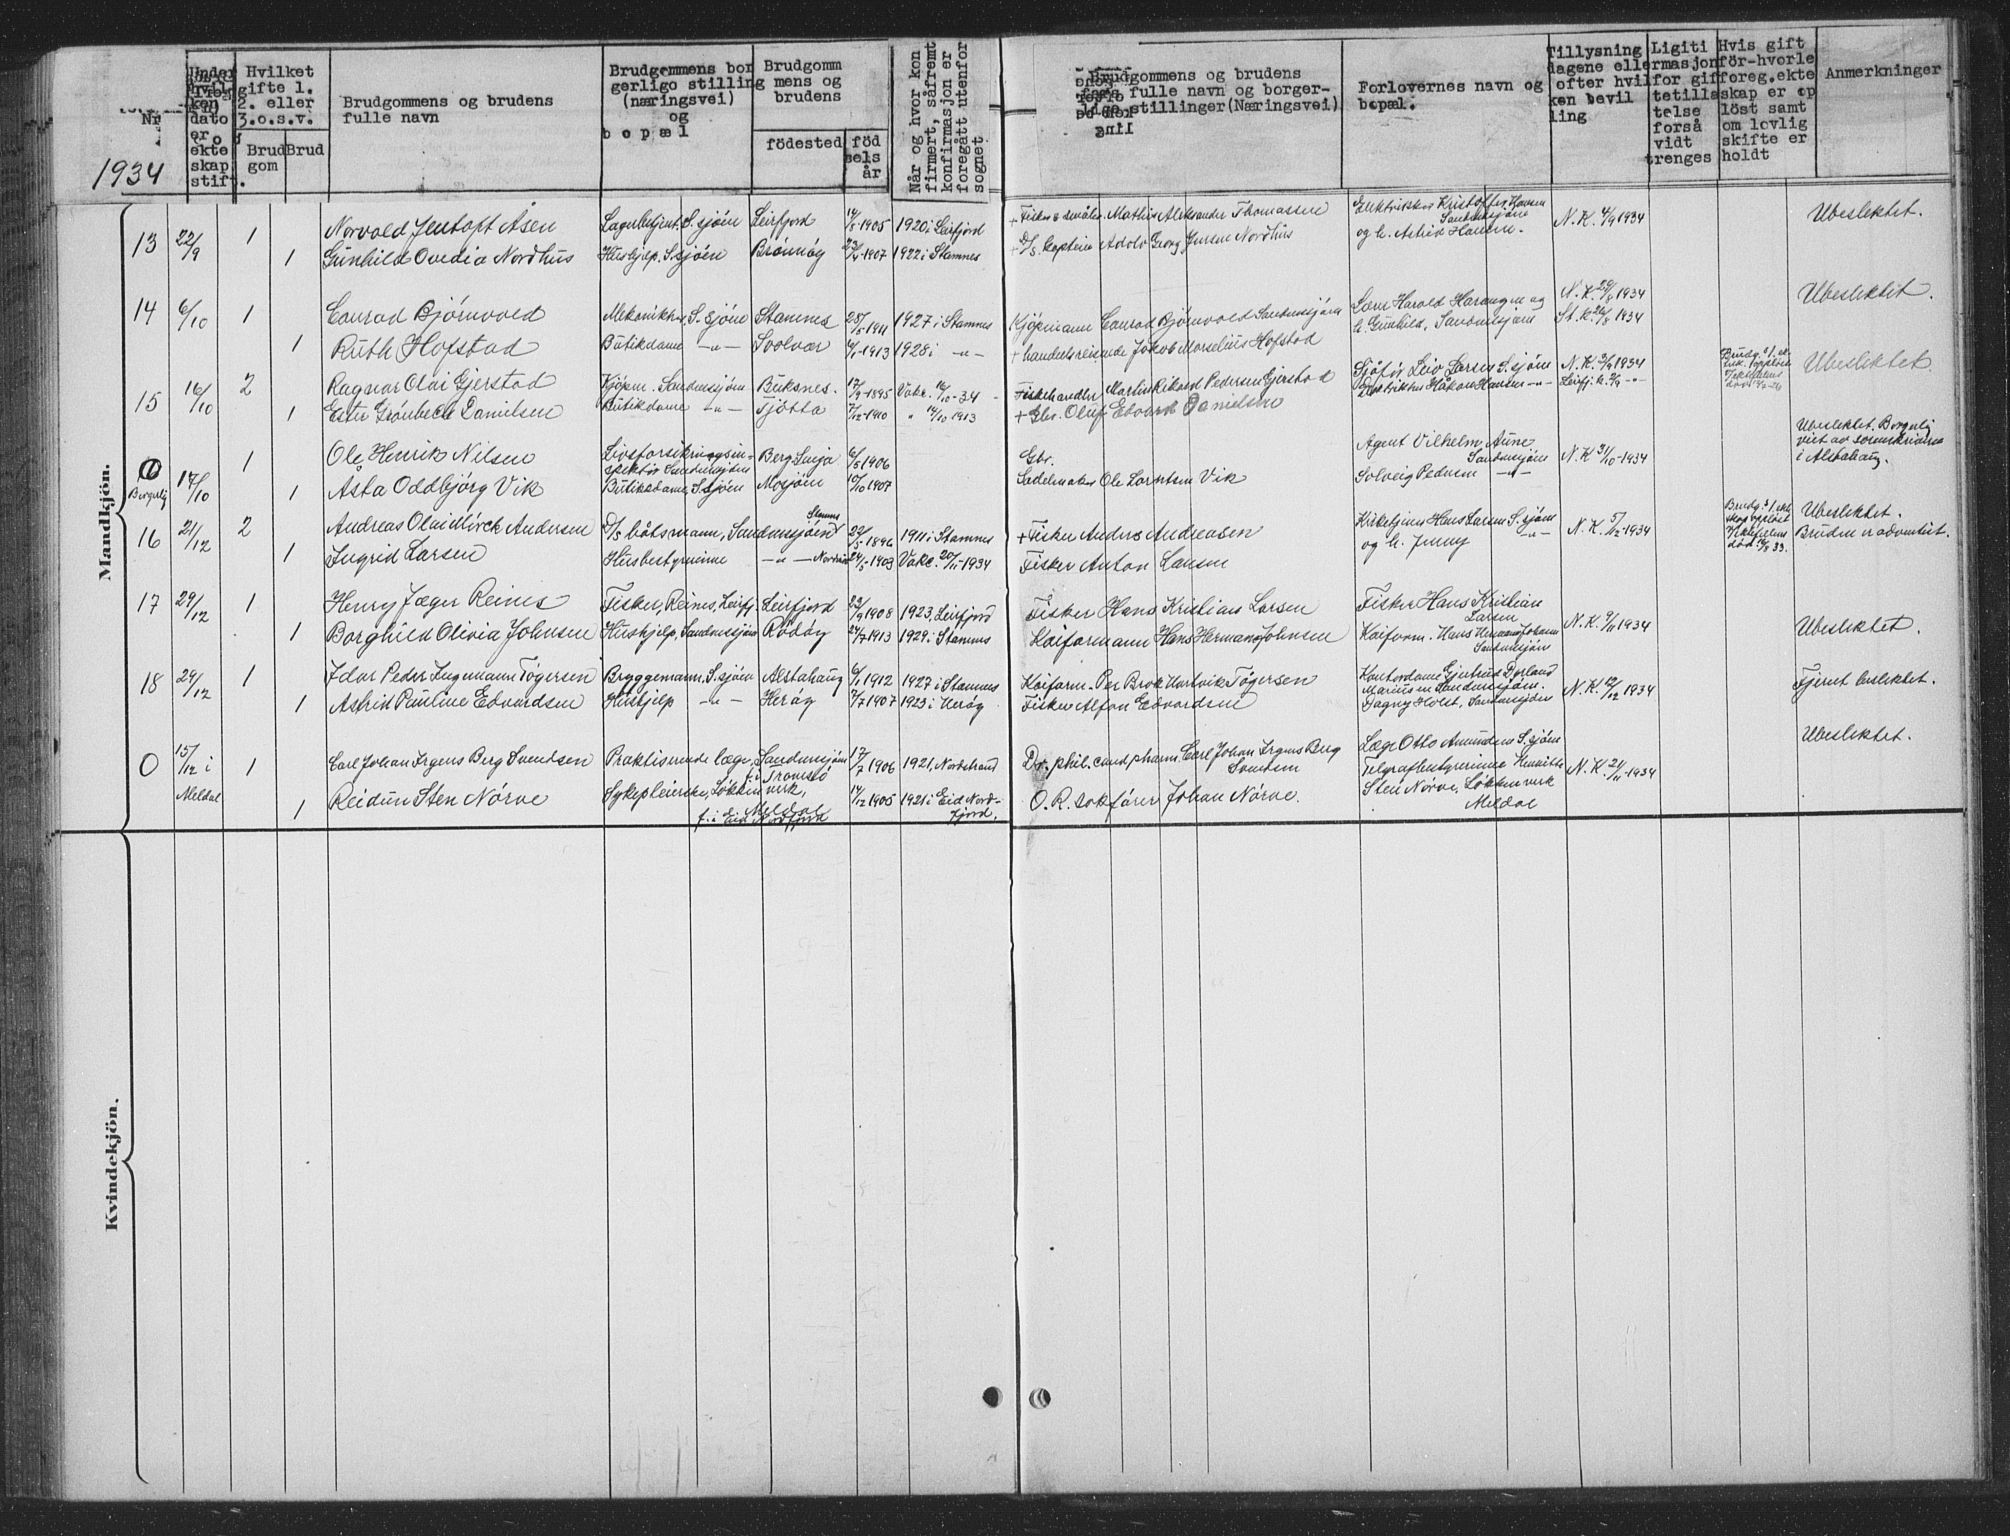 1934
Nr.
Under hvilken dato er ekteskap stift.
Hvilket gifte 1. 2. eller 3.o.s.v.
Brudgom
Brud
Brudgommens og brudens fulle navn
Brudgommens borgerlige stilling (næringsvei) og bopæl
Brudgommens og brudens
födested
födsels år
Når og hvor konfirmert, såfremt konfirmasjon er foregått utenfor sognet
Brudgommens og brudens fars fulle navn og borgerlige stillinger (Næringsvei)
Forlovernes navn og bopæl.
Tillysningdagene eller efter hvilken bevilling
Ligitimasjon for giftetillatelse forså vidt trenges
Hvis gift för-hvorledes foreg.ekteskap er opløst samt om lovlig skifte er holdt
Anmerkninger
Mandkjön.
13 22/9 1 Norvald Jentoft Åsen Lagerbetjent, S.sjöen Leirfjord 14/8 1905 1920 i Leirfjord + Fisker & småbr. Mathias Aleksander Thomassen Elektriker Kristoffer Hansen Sandnessjöen N.K. 4/9 1934 Ubeslektet.
1 Gunhild Ovedia Nordhus Hushjelp, S.sjöen Brönnöy 1907 1922 i Stamnes D/S. kaptein Adolv Georg Jensen Nordhus og h. Astrid Hansen.
14 6/10 1 Conrad Björnvold Mekaniker, S.sjöen Stamnes 25/5 1911 1927 i Stamnes Kjöpmann Conrad Björnvold Sandnessjöen Lærer Harald Haraugen og N.K. 29/8 1934 Ubeslektet.
1 Ruth Hofstad Butikdame -"- Svolvær 6/1 1913 1928 i -"- + handelsreisende Jakob Marselius Hofstad h. Gunhild, Sandnessjöen St.k. 26/8 1934
15 16/10 2 Ragnar Olai Gjerstad Kjöpm. Sandnessjöen Buksnes. 17/9-1895 Vakc. 16/10-34 Fiskehandler Martin Rikard Pedersen Gjerstad Sjåför Leiv Larsen S.sjöen N.K. 3/9 1934 Ubeslektet
1 Ester Grönbech Danielsen Butikdame -"- Tjötta 7/12-1910 " 14/10 1913 + Gbr. Oluf Edvard Danielsen Håkon Hansen -"- Leirfj. k.
O Borgerlig 17/10 1 Ole Henrik Nilsen Livsforsikringsinspektör Sandnessjöen Berg Senja 6/5 1906 Gbr. Agent Vilhelm Aune Sandnessjöen N.K. 31/10-1934 Ubeslektet. Borgerlig viet av sorenskriveren i Alstahaug.
1 Asta Oddbjörg Vik Butikdame, S.sjöen Mosjöen 10/10 1907 Sadelmaker Ole Lorntsen Vik Solveig Pedersen -"-
16 21/12 2 Andreas Olai Mörck Andersen D/S båtsmann, Sandnessjöen Stamnes 22/5-1896 1911 i Stamnes + Fisker Anders Andreasen Kirketjener Hans Larsen S.sjöen N.K. 5/12 1934 Ubeslektet.
1 Ingrid Larsen Husbestyrerinne -"- 24/5-1903 Vakc. 20/11-1934 Fisker Anton Larsen og h. Jenny -"- Bruden er adventist.
17 29/12 1 Henry Jæger Reines Fisker, Reines, Leirfj. Leirfjord 22/9 1908 1923, Leirfjord Fisker Hans Kristian Larsen Fisker Hans Kristian Larsen N.K. 9/11 1934 Ubeslektet.
1 Borghild Olivia Johnsen Hushjelp, Sandnessjöen Rödöy 24/7 1913 1929 i Stamnes Kaiformann Hans Hermann Johnsen Kaiform. Hans Hermann Johnsen Sandnessjöen
18 29/12 1 Idar Peder Ingemann Tögersen Bryggemann, S.sjöen Alstahaug 6/1 1912 1927 i Stamnes Kaiform. Per Brok Hartvik Tögersen Kontordame Gjertrud Dorland Mariussen Sandnessjöen. N.K. 12/12 1934 Fjernt beslektet.
1 Astrid Pauline Edvardsen Hushjelp -"- Heröy 7/7 1907 1923 i Heröy Fisker Alfon Edvardsen Dagny Holst, Sandnessjöen
O 15/12 i Meldal 1 Carl Johan Irgens Berg Svendsen Praktiserende læge, Sandnessjöen f. i Tromsö 17/7 1906 1921, Nordstrand Dr. phil. cand. pharm. Carl Johan Irgens Berg Svendsen Læge Otto Amundsen S.sjöen N.K. 21/11-1934 Ubeslektet.
1 Reidun Sten Nörve Sykepleierske, Lökken verk, Meldal f. i Eid Nordfjord 14/12 1905 1921 i Eid Nordfjord. O.R. sakförer Johan Nörve. Telegrafbestyrerinne Henriette Sten Nörve, Lökken verk Meldal
Kvindekjön.